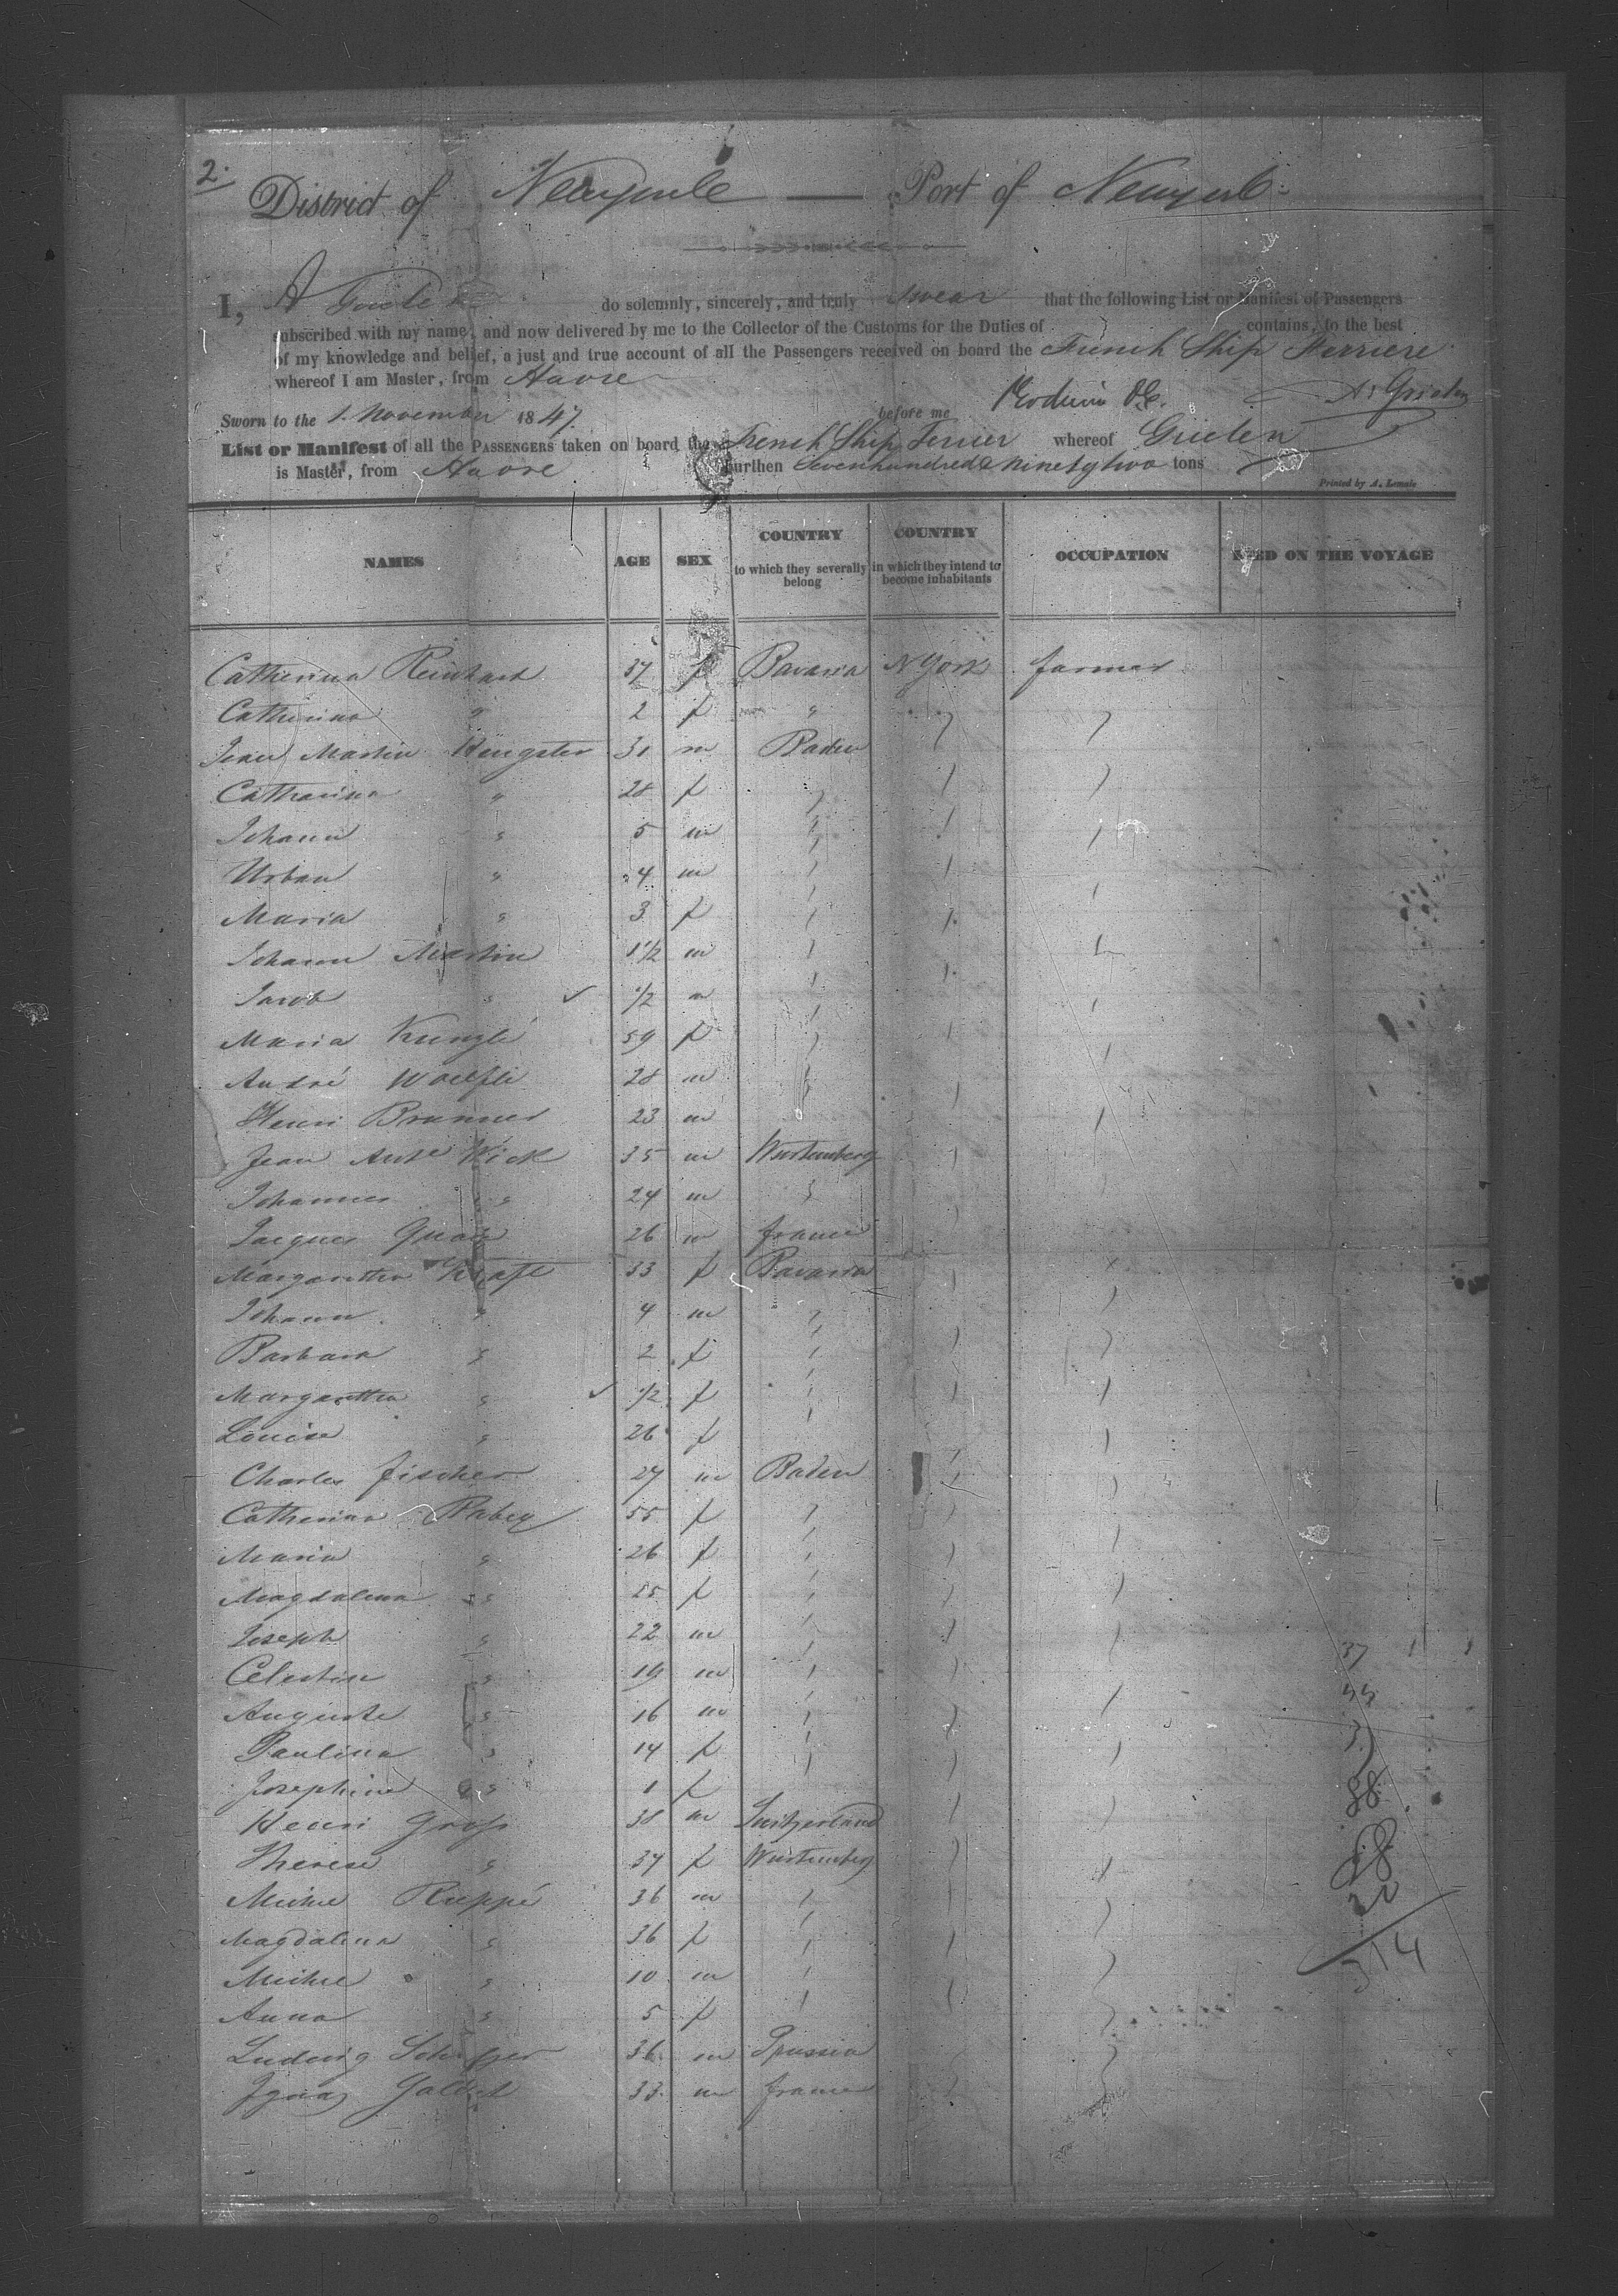 2.
District of Newyork — Port of Newyork
I, A do solemnly, sincerely, and truly swear that the following List or Manifest of Passengers
subscribed with my name, and now delivered by me to the Collector of the Customs for the Duties of contains, to the best
of my knowledge and belief, a just and true account of all the Passengers received on board the French Ship Ferriere
whereof I am Master, from Havre
Sworn to the 1. November 1847. before me
List or Manifest of all the PASSENGERS taken on board the French Ship Ferrier whereof Grieten
is Master, from Havre burthen Sevenhundred & ninetytwo tons
Printed by A. Lemale
NAMES AGE SEX COUNTRY to which they severally belong COUNTRY in which they intend to become inhabitants OCCUPATION DIED ON THE VOYAGE
Catherina Reinhard 37 f Bavaria N York farmer
Catherina " 2 f "
Jean Martin Hengster 31 m Baden
Catharina " 28 f
Johann " 5 m
Urban " 4 m
Maria " 3 f
Johann Martin 1 1/2 m
Jacob " 1/2 m
Maria Kungle 59 f
André Woelfle 28 m
Henri Brunner 23 m
Jean Ante Wick 35 m Wurtemberg
Johannes " 24 m "
Jacques 26 m france
Margaretha Kraft 33 f Bavaria
Johann " 4 m
Barbara " 2 f
Margaretha " 1/2 f
Louise " 26 f
Charles fischer 27 m Baden
Catherina Rabey 55 f
Maria " 26 f
Magdalena " 25 f
Joseph " 22 m
Celestin " 19 m
Auguste " 16 m
Paulina " 14 f
Josephine " 1 f
Henri Gross 38 m Switzerland
Therese " 34 f Wurtemberg
Michel Ruppé 36 m
Magdalena " 36 f
Michel " 10 m
Anna " 5 f
Ludwig 36 m Prussia
Ignaz 33 m france
37
88
314